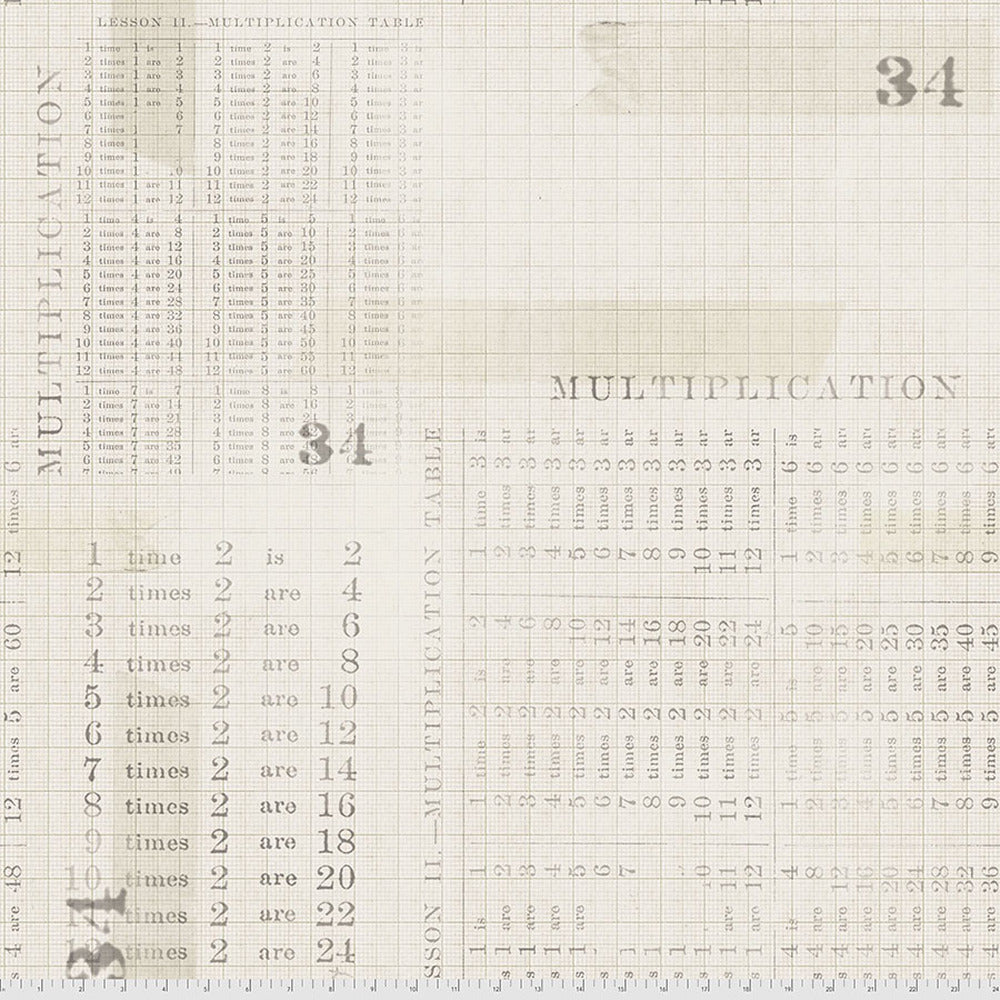 LESSON II.—MULTIPLICATION TABLE
1 time 1 is 1 1 time 2 is 2 1 time 3 is
2 times 1 are 2 2 times 2 are 4 2 times 3 ar
3 times 1 are 3 3 times 2 are 6 3 times 3 ar
4 times 1 are 4 4 times 2 are 8 4 times 3 ar
5 times 1 are 5 5 times 2 are 10 5 times 3 ar
6 times 6 6 times 2 are 12 6 times 3 ar
7 times 1 7 7 times 2 are 14 7 times 3 ar
8 times 1 8 times 2 are 16 8 times 3 ar
9 times 1 9 times 2 are 18 9 times 3 ar
10 times 1 10 times 2 are 20 10 times 3 ar
11 times 1 are 11 11 times 2 are 22 11 times 3 ar
12 times 1 are 12 12 times 2 are 24 12 times 3 ar
1 time 4 is 4 1 time 5 is 5 1 time 6
2 times 4 are 8 2 times 5 are 10 2 times 6 ar
3 times 4 are 12 3 times 5 are 15 3 times 6 ar
4 times 4 are 16 4 times 5 are 20 4 times 6 ar
5 times 4 are 20 5 times 5 are 25 5 times 6 ar
6 times 4 are 24 6 times 5 are 30 6 times 6 ar
7 times 4 are 28 7 times 5 are 35 7 times 6 ar
8 times 4 are 32 8 times 5 are 40 8 times 6
9 times 4 are 36 9 times 5 are 45 9 times 6
10 times 4 are 40 10 times 5 are 50 10 times 6
11 times 4 are 44 11 times 5 are 55 11 times
12 times 4 are 48 12 times 5 are 60 12 times
1 time 7 is 7 1 time 8 is 8 1 time
2 times 7 are 14 2 times 8 are 16 2
3 times 7 are 21 3 times 8 are 24
4 times 7 are 28 4 times 8 are
5 times 7 are 35 5 times 8 are
6 times 7 are 42 6 times 8 are
MULTIPLICATION
34
34
MULTIPLICATION
1 time 2 is 2
2 times 2 are 4
3 times 2 are 6
4 times 2 are 8
5 times 2 are 10
6 times 2 are 12
7 times 2 are 14
8 times 2 are 16
9 times 2 are 18
10 times 2 are 20
times 2 are 22
times 2 are 24
34
SSON II.—MULTIPLICATION TABLE
1 is 1 1 time 2 is 2 1 time 3 is
s 1 are 2 2 times 2 are 4 2 times 3 ar
s 1 are 3 3 times 2 are 6 3 times 3 ar
s 1 are 4 4 times 2 are 8 4 times 3 ar
s 1 are 5 5 times 2 are 10 5 times 3 ar
6 6 times 2 are 12 6 times 3 ar
s 1 7 7 times 2 are 14 7 times 3 ar
s 1 8 times 2 are 16 8 times 3 ar
s 1 9 times 2 are 18 9 times 3 ar
s 1 10 times 2 are 20 10 times 3 ar
s 1 are 11 11 times 2 are 22 11 times 3 ar
s 1 are 12 12 times 2 are 24 12 times 3 ar
4 is 4 1 time 5 is 5 1 time 6 is
s 4 are 8 2 times 5 are 10 2 times 6 ar
s 4 are 12 3 times 5 are 15 3 times 6 ar
s 4 are 16 4 times 5 are 20 4 times 6 ar
s 4 are 20 5 times 5 are 25 5 times 6 ar
s 4 are 24 6 times 5 are 30 6 times 6 ar
s 4 are 28 7 times 5 are 35 7 times 6 ar
s 4 are 32 8 times 5 are 40 8 times 6 ar
s 4 are 36 9 times 5 are 45 9 times 6 ar
s 4 are 48 12 times 5 are 60 12 times 6 are
1 2 3 4 5 6 7 8 9 10 11 12 13 14 15 16 17 18 19 20 21 22 23 24